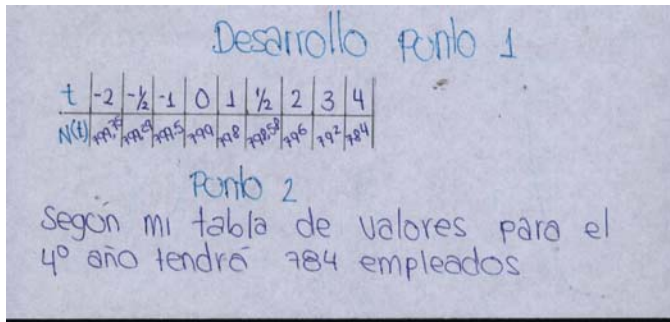 Desarrollo Punto 1
t -2 -½ -1 0 1 ½ 2 3 4
N(t) 799,75 799,29 799,5 799 798 798,58 796 792 784
Punto 2
Según mi tabla de valores para el
4º año tendrá 784 empleados